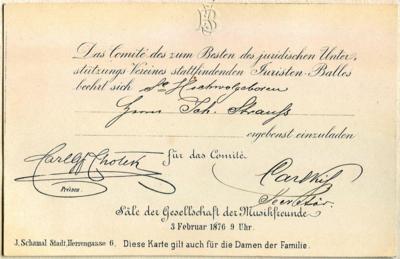 JB
Das Comité des zum Besten des juridischen Unter-
stützungs-Vereines stattfindenden Juristen-Balles
beehrt sich Sr Hochwolgeboren
Herrn Joh. Strauss
ergebenst einzuladen
für das Comité.
Carl Gf Chotek
Präses.
Secretär.
Säle der Gesellschaft der Musikfreunde
3 Februar 1876 9 Uhr.
J. Schamal Stadt, Herrengasse 6. Diese Karte gilt auch für die Damen der Familie.